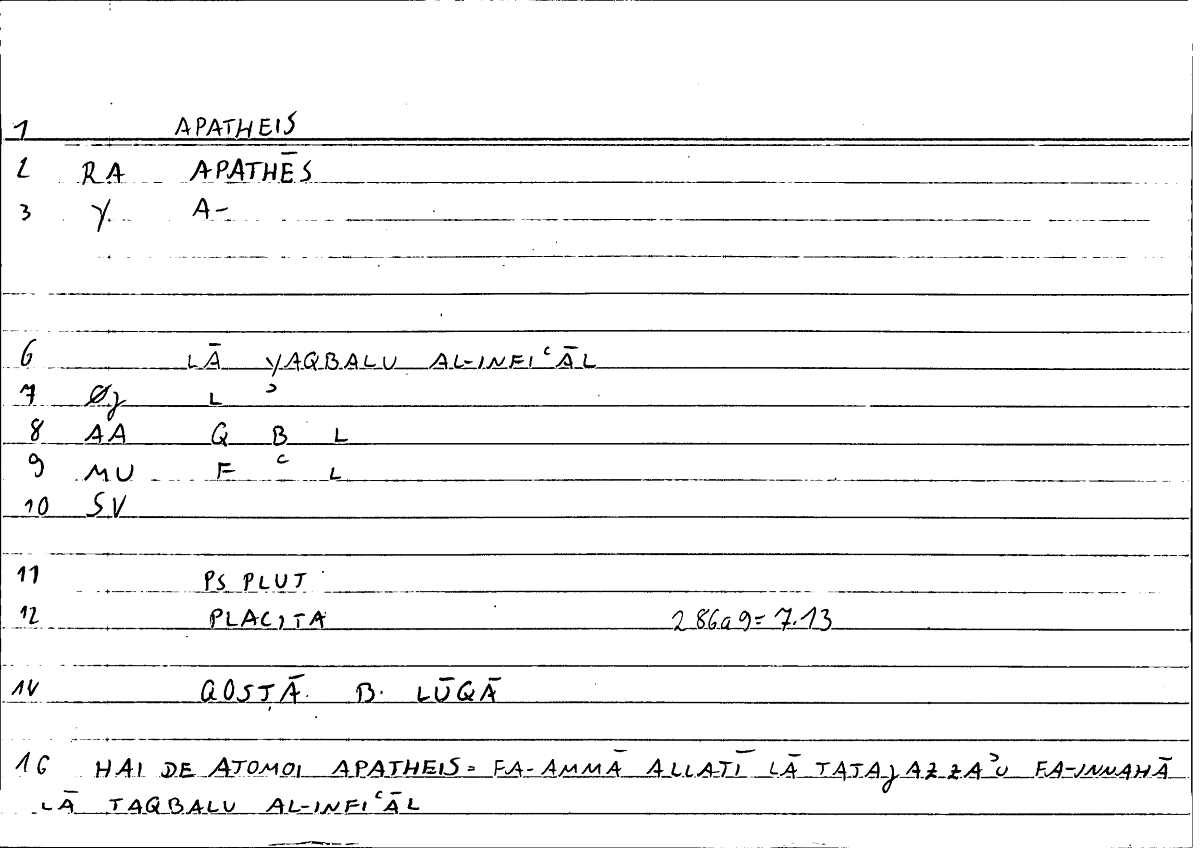 1 APATHEIS
2 RA APATHĒS
3 γ A-
6 LĀ YAQBALU AL-INFIʿĀL
7 Øj L ʾ
8 AA Q B L
9 MU F ʿ L
10 SV
11 PS PLUT
12 PLACITA 286a9=7.13
14 QOSṬĀ B. LŪQĀ
16 HAI DE ATOMOI APATHEIS = FA-AMMĀ ALLATĪ LĀ TATAJAZZAʾU FA-INNAHĀ
LĀ TAQBALU AL-INFIʿĀL